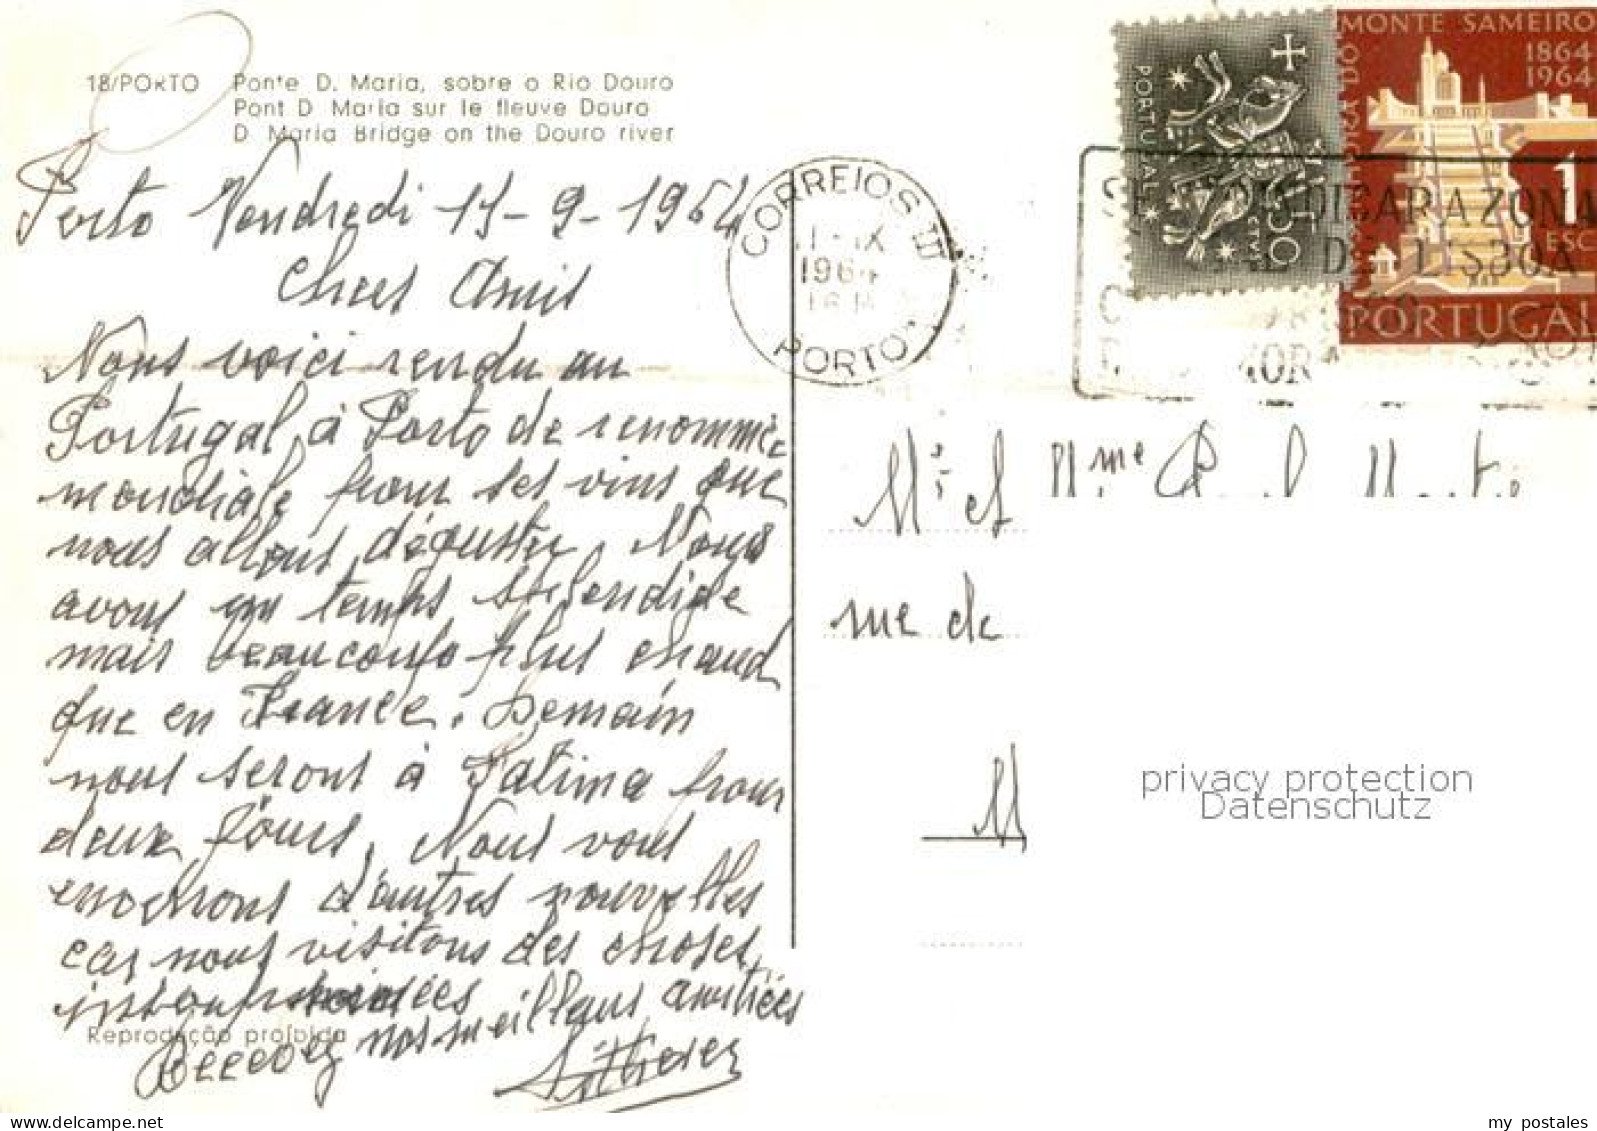 18/PORTO Ponte D. Maria, sobre o Rio Douro
Pont D Maria sur le fleuve Douro
D. Maria Bridge on the Douro river
Porto Vendredi 11-9-1964
Chers Amis
Nous voici rendu au
Portugal, à Porto de renommée
mondiale pour ses vins que
nous allons déguster. Nous
avons un temps splendide
mais beaucoup plus chaud
que en France. Demain
nous serons à Fatima pour
deux jours. Nous vous
enverrons d'autres nouvelles
car nous visitons des choses
Recevez nos meilleurs amitiées
Reprodução proíbida
CORREIOS
1964
PORTO
PORTUGAL
MONTE SAMEIRO
1864
1964
1
ESC
PORTUGAL
DE LISBOA
Mr et Mme
rue de
M
privacy protection
Datenschutz
my postales